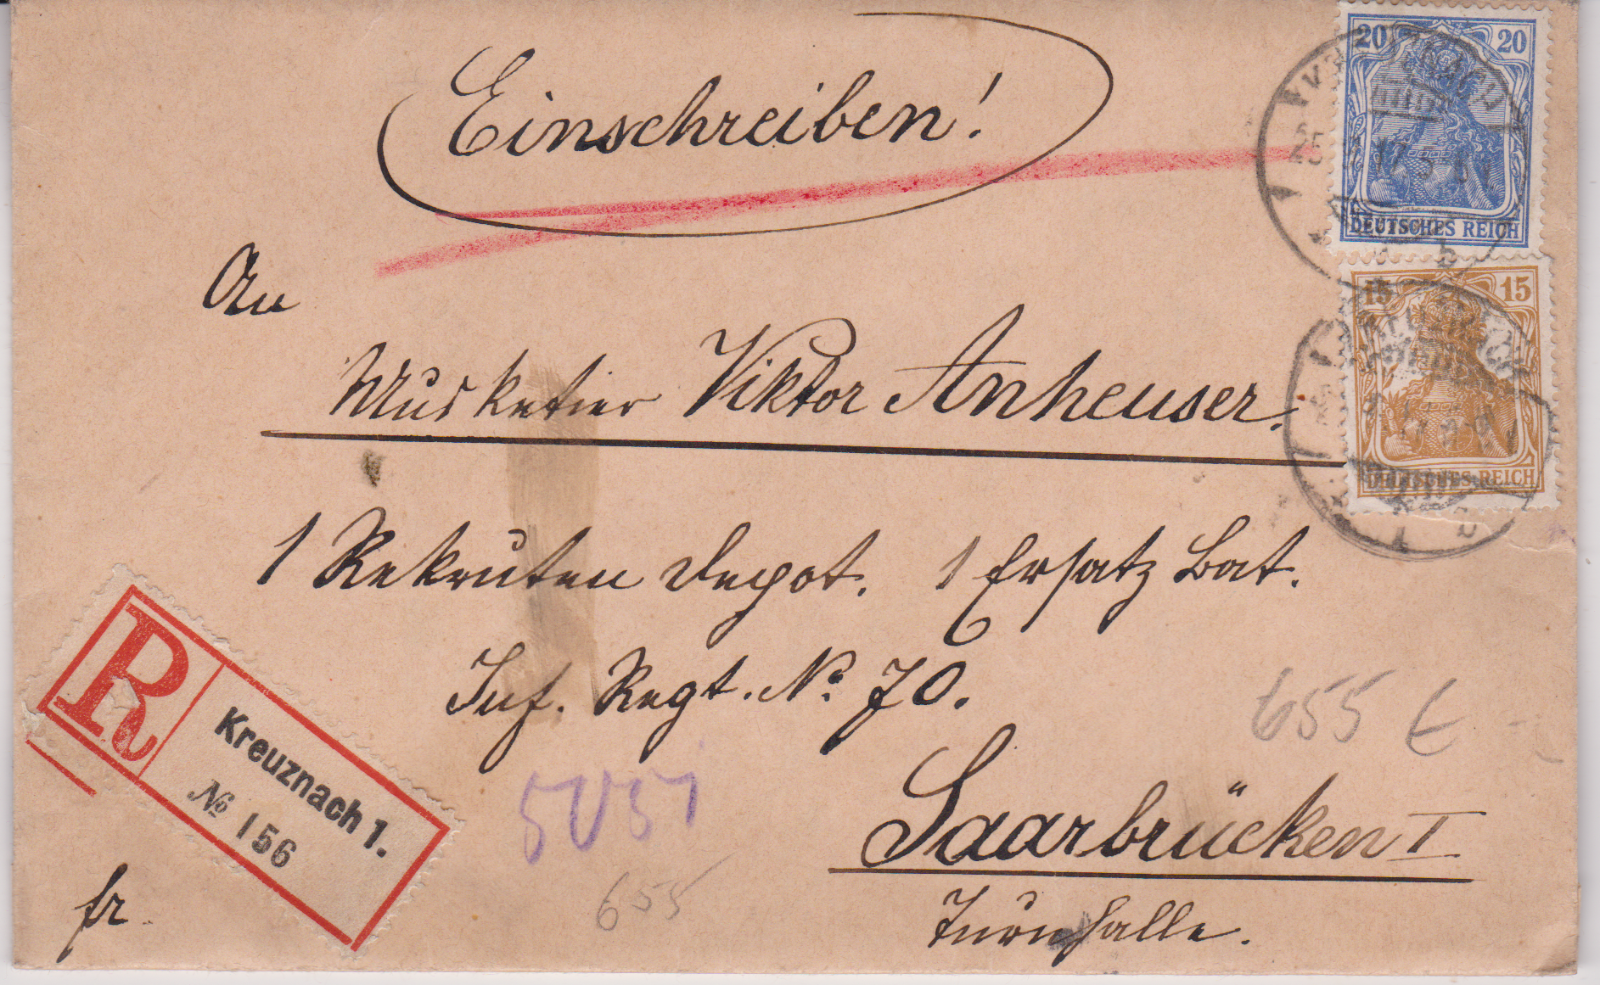 Einschreiben!
20 20
DEUTSCHES REICH
15 15
DEUTSCHES REICH
An
Musketier Viktor Anheuser.
1 Rekruten Depot. 1 Ersatz Bat.
Inf. Regt. No 70.
Saarbrücken I
Turnhalle.
R
Kreuznach 1.
No 156
655 €
655
fr.